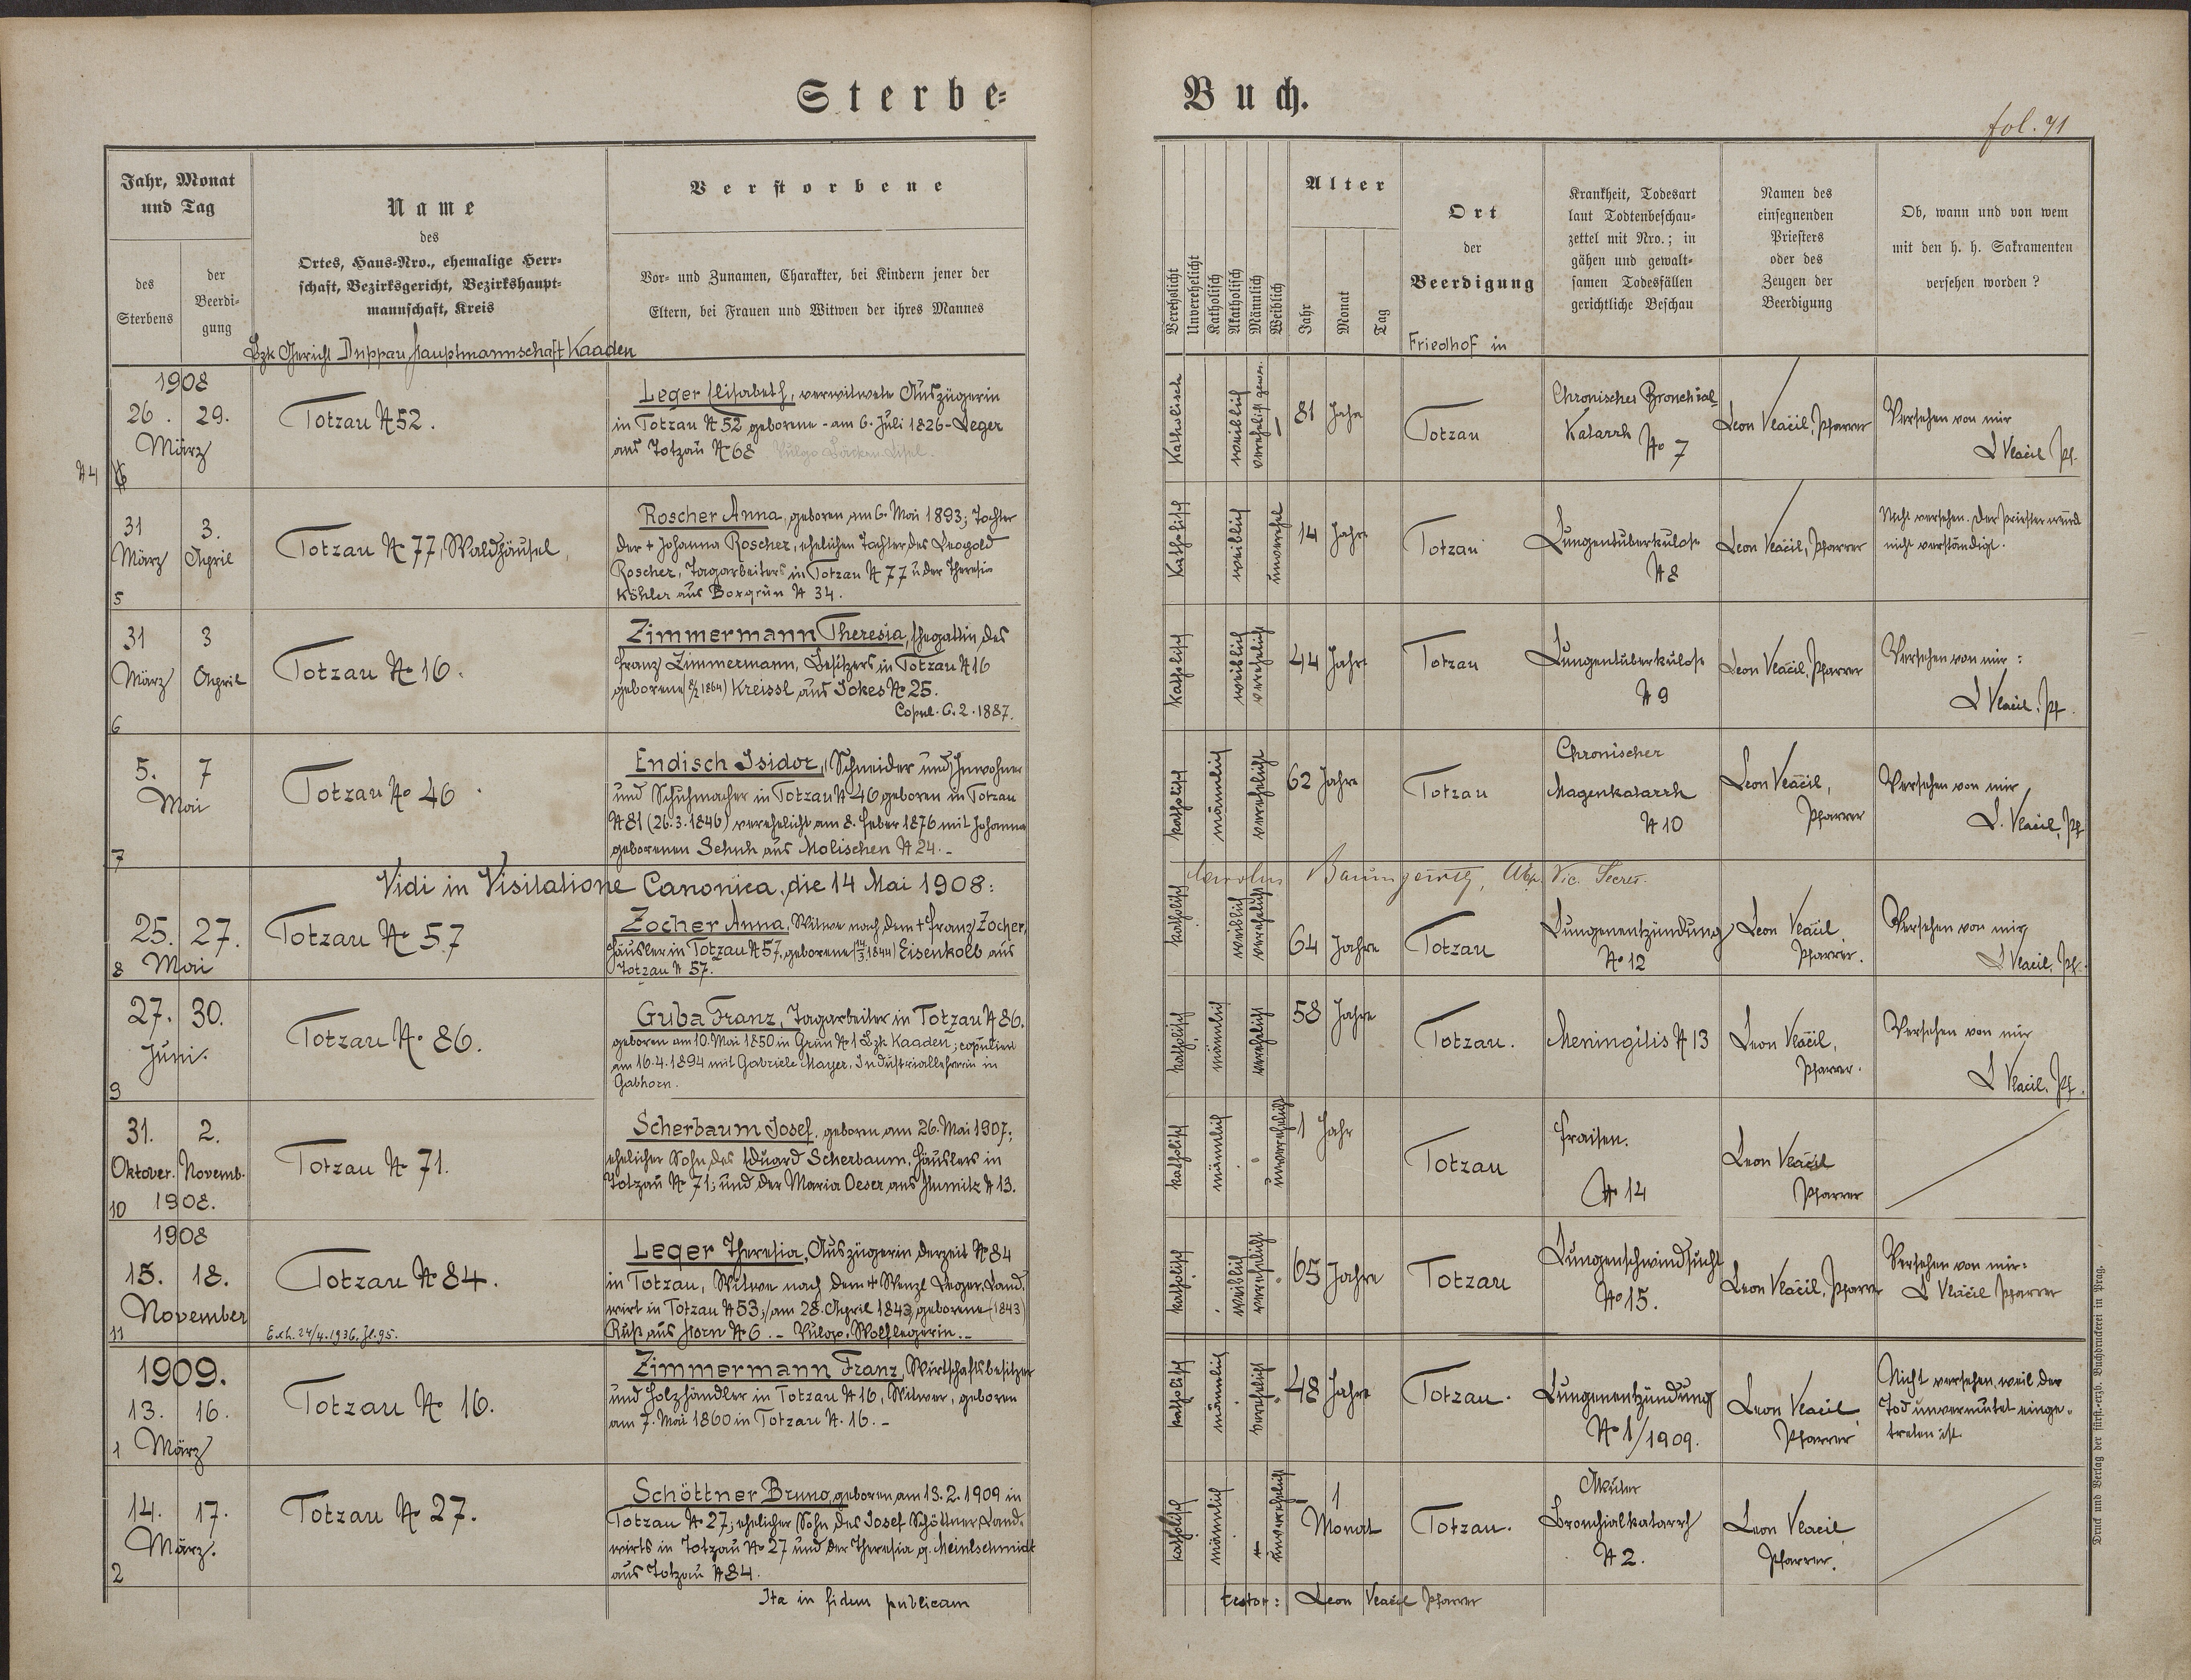 Sterbe-
Buch.
fol. 71
Jahr, Monat
und Tag
des
Sterbens
der
Beerdi-
gung
Name
des
Ortes, Haus-Nro., ehemalige Herr-
schaft, Bezirksgericht, Bezirkshaupt-
mannschaft, Kreis
Bzk Gericht Duppau Hauptmannschaft Kaaden
Verstorbene
Vor- und Zunamen, Charakter, bei Kindern jener der
Eltern, bei Frauen und Witwen der ihres Mannes
Verehelicht
Unverehelicht
Katholisch
Akatholisch
Männlich
Weiblich
Alter
Jahr
Monat
Tag
Ort
der
Beerdigung
Friedhof in
Krankheit, Todesart
laut Todtenbeschau-
zettel mit Nro.; in
gähen und gewalt-
samen Todesfällen
gerichtliche Beschau
Namen des
einsegnenden
Priesters
oder des
Zeugen der
Beerdigung
Ob, wann und von wem
mit den h. h. Sakramenten
versehen worden?
1908
26. 29.
März
№ 4
Totzau № 52.
Leger Elisabeth, verwitwete Auszügerin
in Totzau № 52 geborene - am 6. Juli 1826 - Leger
aus Totzau № 68
Katholisch
weiblich
verehelicht gewes.
81 Jahre
Totzau
Chronischer Bronchial
Katarrh
№ 7
Leon Vlačil, Pfarrer
Versehen von mir
L Vlačil Pf.
31 3.
März April
5
Totzau № 77, Waldhäusel
Roscher Anna, geboren am 6. Mai 1893; Tochter
der + Johanna Roscher, ehelichen Tochter des Leopold
Roscher, Tagarbeiters in Totzau № 77 u der Theresia
Köhler aus Boxgrün № 34.
Katholisch
weiblich
unverehel
14 Jahre
Totzau
Lungentuberkulose
№ 8
Leon Vlačil, Pfarrer
Nicht versehen. Der Priester wurde
nicht verständigt.
31 3
März April
6
Totzau № 16.
Zimmermann Theresia, Ehegattin des
Franz Zimmermann, Besitzers in Totzau № 16
geborene (8/2 1864) Kreissl aus Jokes № 25.
Copul. 6. 2. 1887.
Katholisch
weiblich
verehelicht
44 Jahre
Totzau
Lungentuberkulose
№ 9
Leon Vlačil, Pfarrer
Versehen von mir:
L Vlačil, Pf.
5. 7
Mai
7
Totzau № 46
Endisch Isidor, Schneider und Inwohner
und Schuhmacher in Totzau № 46 geboren in Totzau
№ 81 (26. 3. 1846) verehelicht am 8. Feber 1876 mit Johanna
geborenen Schuh aus Molischen № 24. -
katholisch
männlich
verehelicht
62 Jahre
Totzau
Chronischer
Magenkatarrh
№ 10
Leon Vlačil,
Pfarrer
Versehen von mir
L. Vlačil, Pf
Vidi in Visitatione Canonica, die 14 Mai 1908:
Vic. Secret.
25. 27.
8 Mai
Totzau № 57
Zocher Anna, Witwe nach dem + Franz Zocher,
Häusler in Totzau № 57, geborene (14/3 1844) Eisenkolb aus
Totzau № 57.
katholisch
weiblich
verehelicht
64 Jahre
Totzau
Lungenentzündung
№ 12
Leon Vlačil
Pfarrer.
Versehen von mir,
L Vlačil, Pf.
27. 30.
Juni.
9
Totzau № 86.
Guba Franz, Tagarbeiter in Totzau № 86.
geboren am 10. Mai 1850 in Grün № 1 Bzk Kaaden; copuliert
am 16. 4. 1894 mit Gabriele Mayer, Industriallehrerin in
Gabhorn.
katholisch
männlich
verehelicht
58 Jahre
Totzau.
Meningitis № 13
Leon Vlačil,
Pfarrer.
Versehen von mir
L Vlačil, Pf.
31. 2.
Oktober. Novemb.
10 1908.
Totzau № 71.
Scherbaum Josef, geboren am 26. Mai 1907;
ehelicher Sohn des Eduard Scherbaum, Häuslers in
Totzau № 71; und der Maria Oeser aus Jumitz № 13.
katholisch
männlich
unverehelicht
1 Jahr
Totzau
Fraisen.
№ 14
Leon Vlačil
Pfarrer
1908
15. 18.
November
11
Totzau № 84.
Exh. 24/4. 1936. Jl. 95.
Leger Theresia, Auszügerin derzeit № 84
in Totzau, Witwe nach dem + Wenzl Leger, Land-
wirt in Totzau № 53; am 28. April 1843, geborene (1843)
Ruß aus Horn № 6. - Vulgo. Wolflegerin. -
katholisch
weiblich
verehelicht
65 Jahre
Totzau
Lungenschwindsucht
№ 15.
Leon Vlačil, Pfarrer
Versehen von mir:
L Vlačil Pfarrer
1909.
13. 16.
1 März
Totzau № 16.
Zimmermann Franz, Wirtschaftsbesitzer
und Holzhändler in Totzau № 16, Witwer, geboren
am 7. Mai 1860 in Totzau № 16. -
katholisch
männlich
verehelicht
48 Jahre
Totzau.
Lungenentzündung
№ 1/1909.
Leon Vlačil
Pfarrer
Nicht versehen, weil der
Tod unvermutet einge-
treten ist.
14. 17.
März.
2
Totzau № 27.
Schöttner Bruno, geboren am 13. 2. 1909 in
Totzau № 27; ehelicher Sohn des Josef Schöttner, Land-
wirts in Totzau № 27 und der Theresia g. Meinlschmidt
aus Totzau № 84.
katholisch
männlich
unverehelicht
1
Monat
Totzau.
Akuter
Bronchialkatarrh
№ 2.
Leon Vlačil
Pfarrer.
Ita in fidem publicam
testor: Leon Vlačil Pfarrer
Druck und Verlag der fürst.-erzb. Buchdruckerei in Prag.